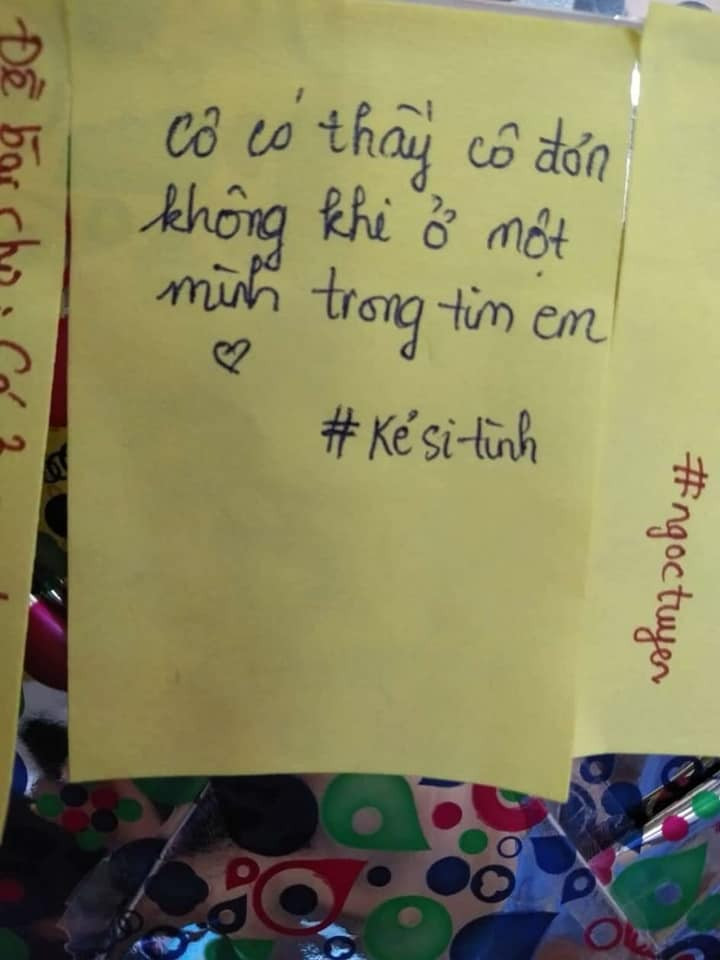 Để bạn chị: Có 2
Cô có thấy cô đơn
không khi ở một
mình trong tim em
♡
#Kẻ si tình
#ngoctuyen